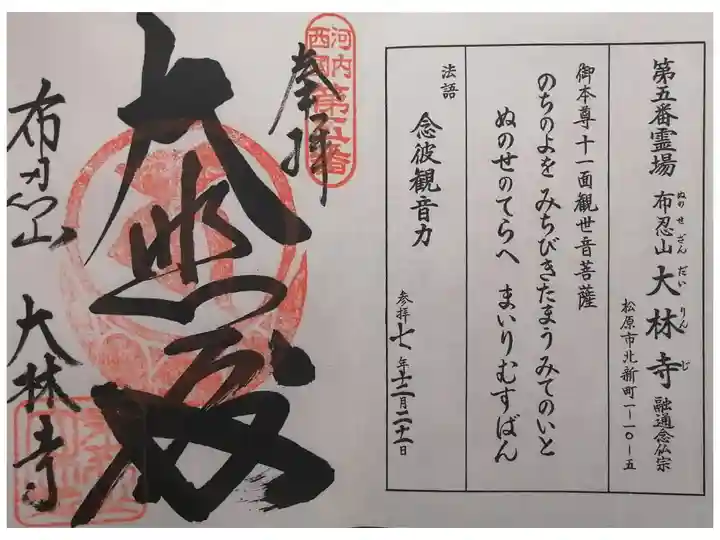 第五番霊場 布忍山 大林寺 融通念仏宗
ぬのせざん だいりんじ
松原市北新町一ー一〇ー五
御本尊十一面観世音菩薩
のちのよを みちびきたまう みてのいと
ぬのせのてらへ まいりむすばん
法語 念彼観音力
参拝 七年十二月二十一日
河内
西国
第五番
奉拝
大悲殿
布忍山 大林寺